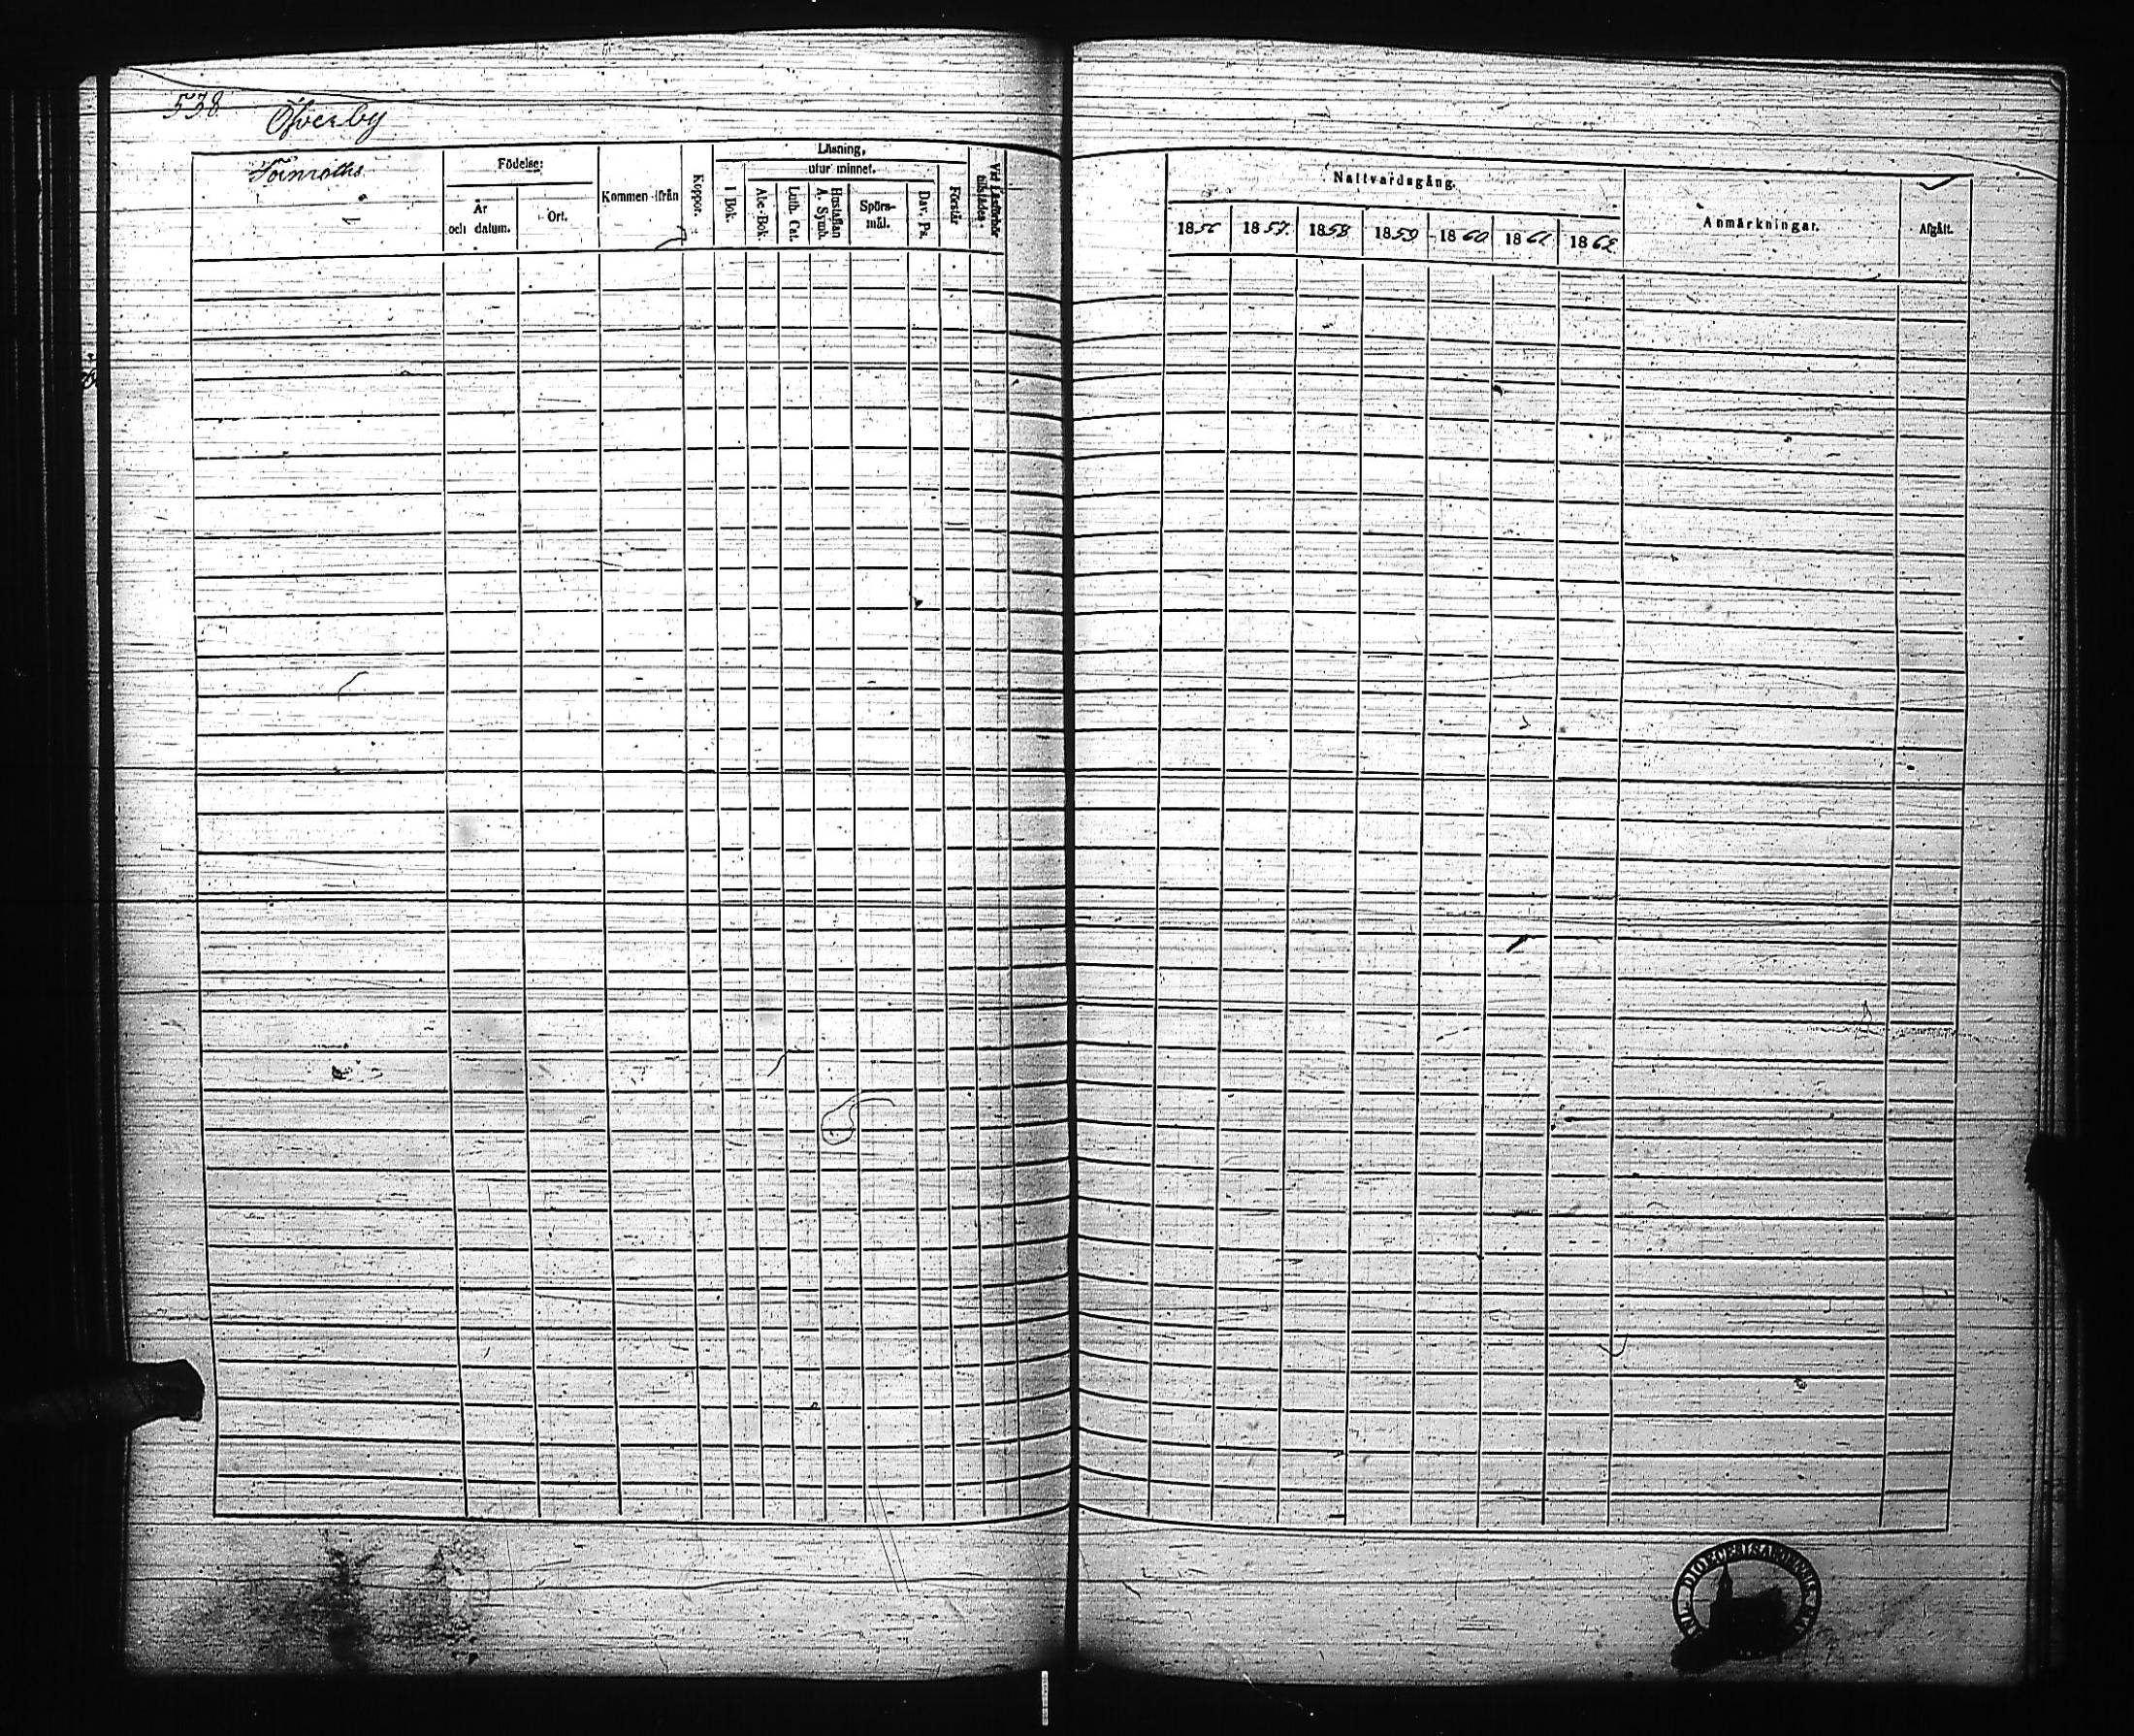 538 Öfverby
Födelse:
År och datum.
Ort.
Kommen ifrån
Koppor.
Läsning,
utur minnet.
I Bok.
Abc-Bok.
Luth. Cat.
Hustaflan A. Symb.
Spörs-mål.
Dav. Ps.
Förstår
Vid Läsförhör tillstädes.
Nattvardsgång.
1856 1857. 1858 1859 1860 1861 1862
Anmärkningar.
Afgått.